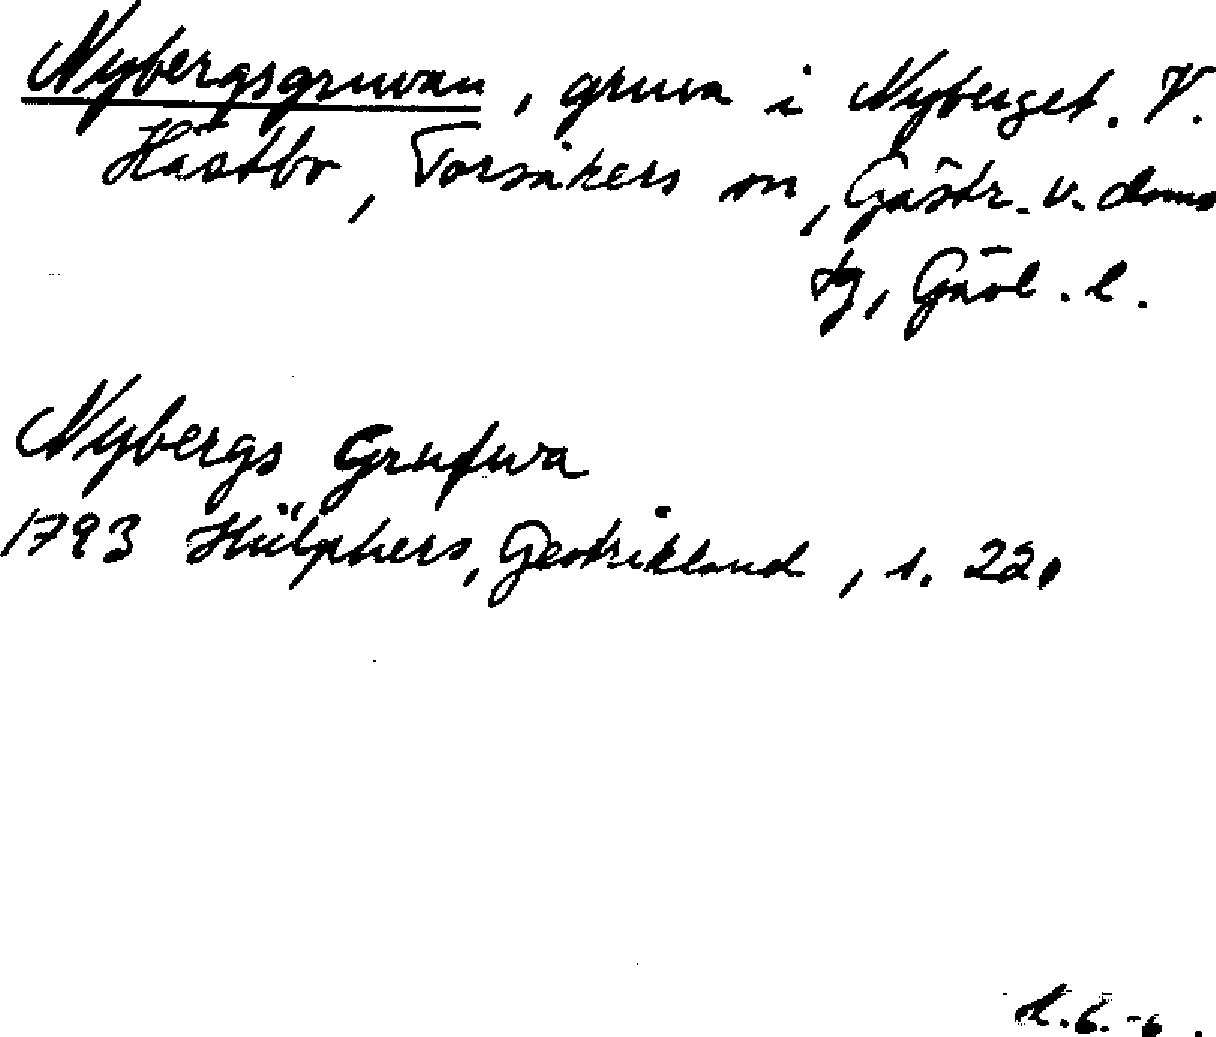 Nybergsgruvan, gruva i Nyberget. V.
Hästbo, Torsåkers sn, Gästr. v. doms
tg, Gävl. l.
Nybergs Grufwa
1793 Hülphers, Gestrikland, s. 22.